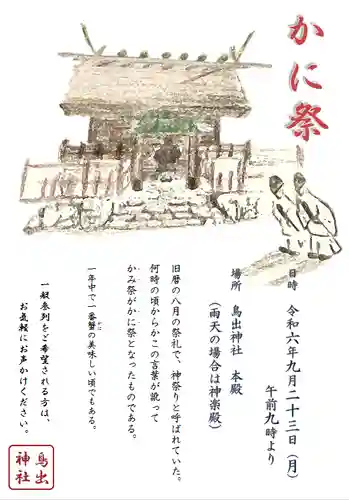 かに祭
日時　令和六年九月二十三日（月）
午前九時より
場所　鳥出神社　本殿
（雨天の場合は神楽殿）
旧暦の八月の祭礼で、神祭りと呼ばれていた。
何時の頃からかこの言葉が訛って
かみ祭がかに祭となったものである。
一年中で一番蟹の美味しい頃でもある。
一般参列をご希望される方は、
お気軽にお声かけください。
鳥出
神社